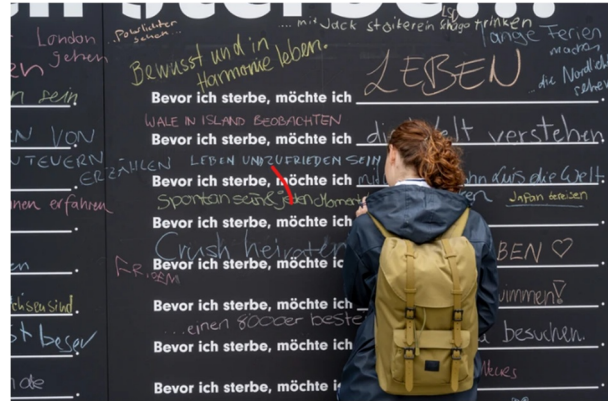 sterbe...
London
gehen
...Polarlichter
sehen...
...mit Jack
trinken
lange Ferien
machen
Bewusst und in
Harmonie leben.
LEBEN
...die Nordlichter
sehen
sein
Bevor ich sterbe, möchte ich
WALE IN ISLAND BEOBACHTEN
VON
Bevor ich sterbe, möchte ich die Welt verstehen.
ERZÄHLEN
LEBEN UND ZUFRIEDEN SEIN
Bevor ich sterbe, möchte ich durch die Welt
nen erfahren
Spontan sein & jeden Moment
Japan bereisen
Crush heiraten
BEN ♡
Bevor ich sterbe, möchte ic
FRIEDEN
Bevor ich sterbe, möchte ich
wimmen!
...einen 8000er beste
besser
Bevor ich sterbe, möchte ich
besuchen.
Bevor ich sterbe, möchte i